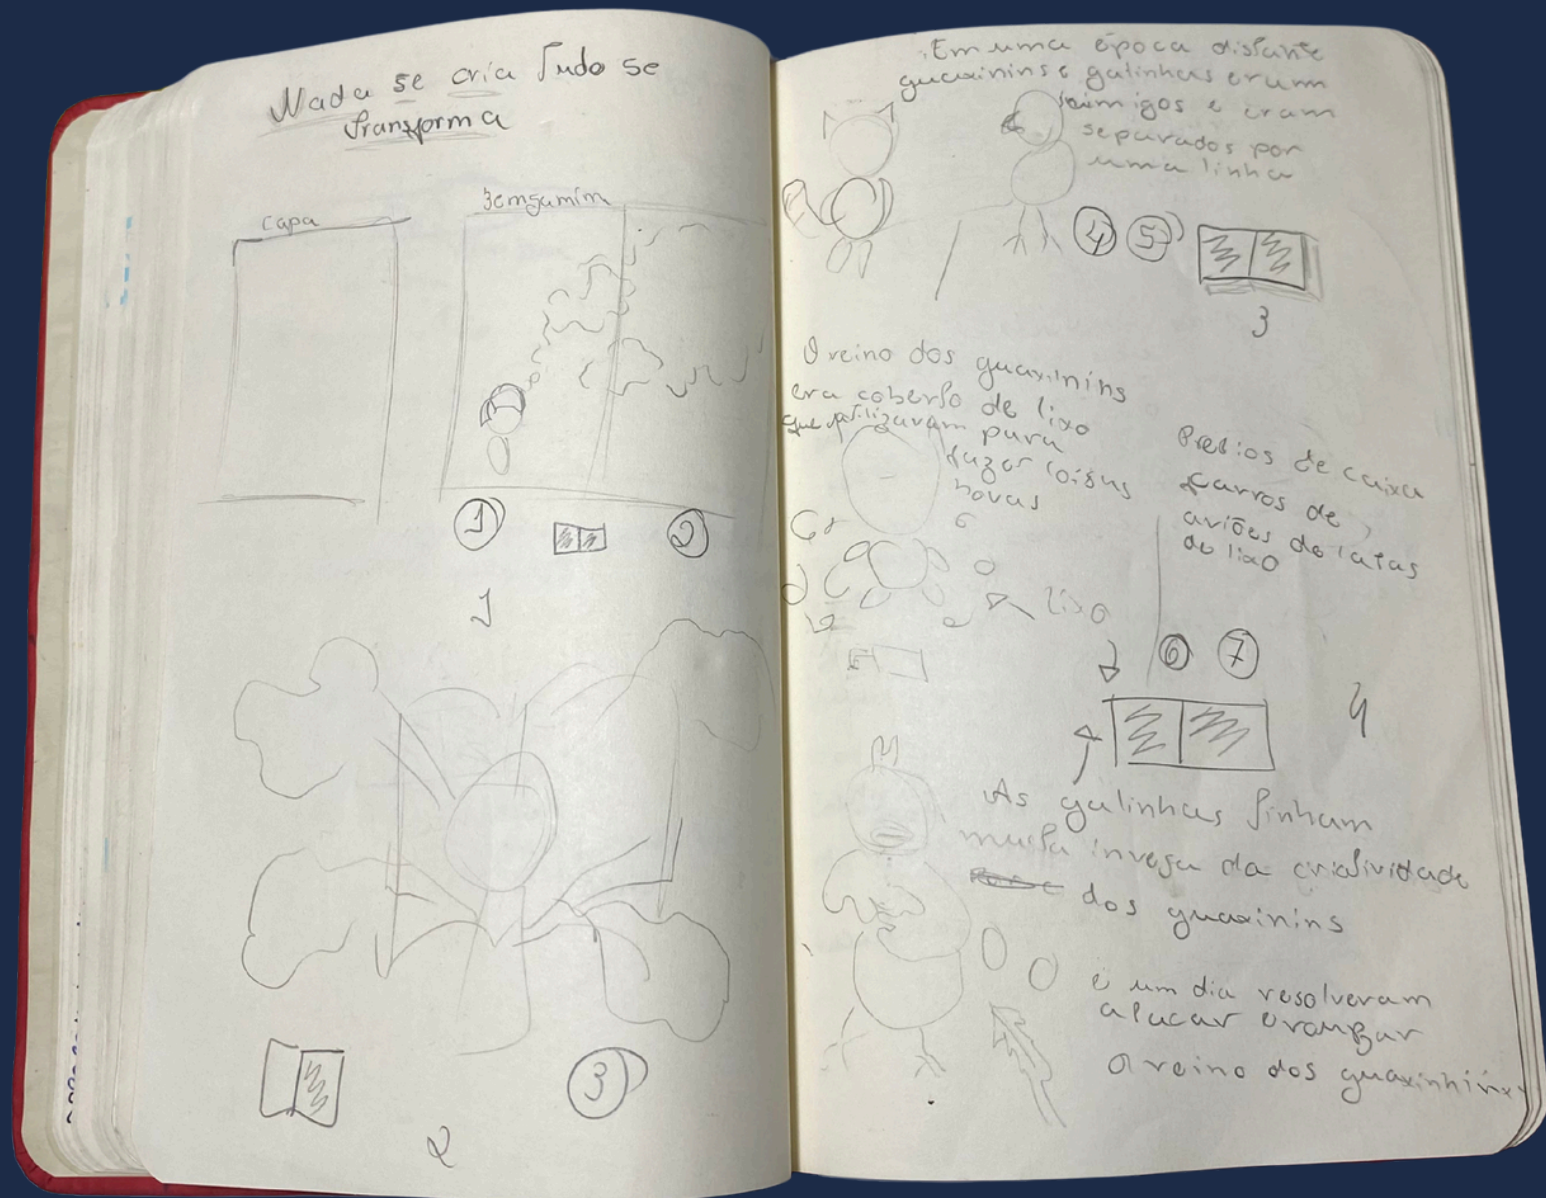 Nada se cria Tudo se
Transforma
Capa
Bemjamim
1
2
1
3
2
Em uma época distante
guaxinins e galinhas eram
inimigos e eram
separados por
uma linha
4 5
3
O reino dos guaxinins
era coberto de lixo
que utilizavam para
fazer coisas
novas
lixo
Predios de caixa
carros de
aviões de latas
de lixo
6 7
4
As galinhas tinham
muita inveja da criatividade
dos guaxinins
e um dia resolveram
atacar
o reino dos guaxinhins